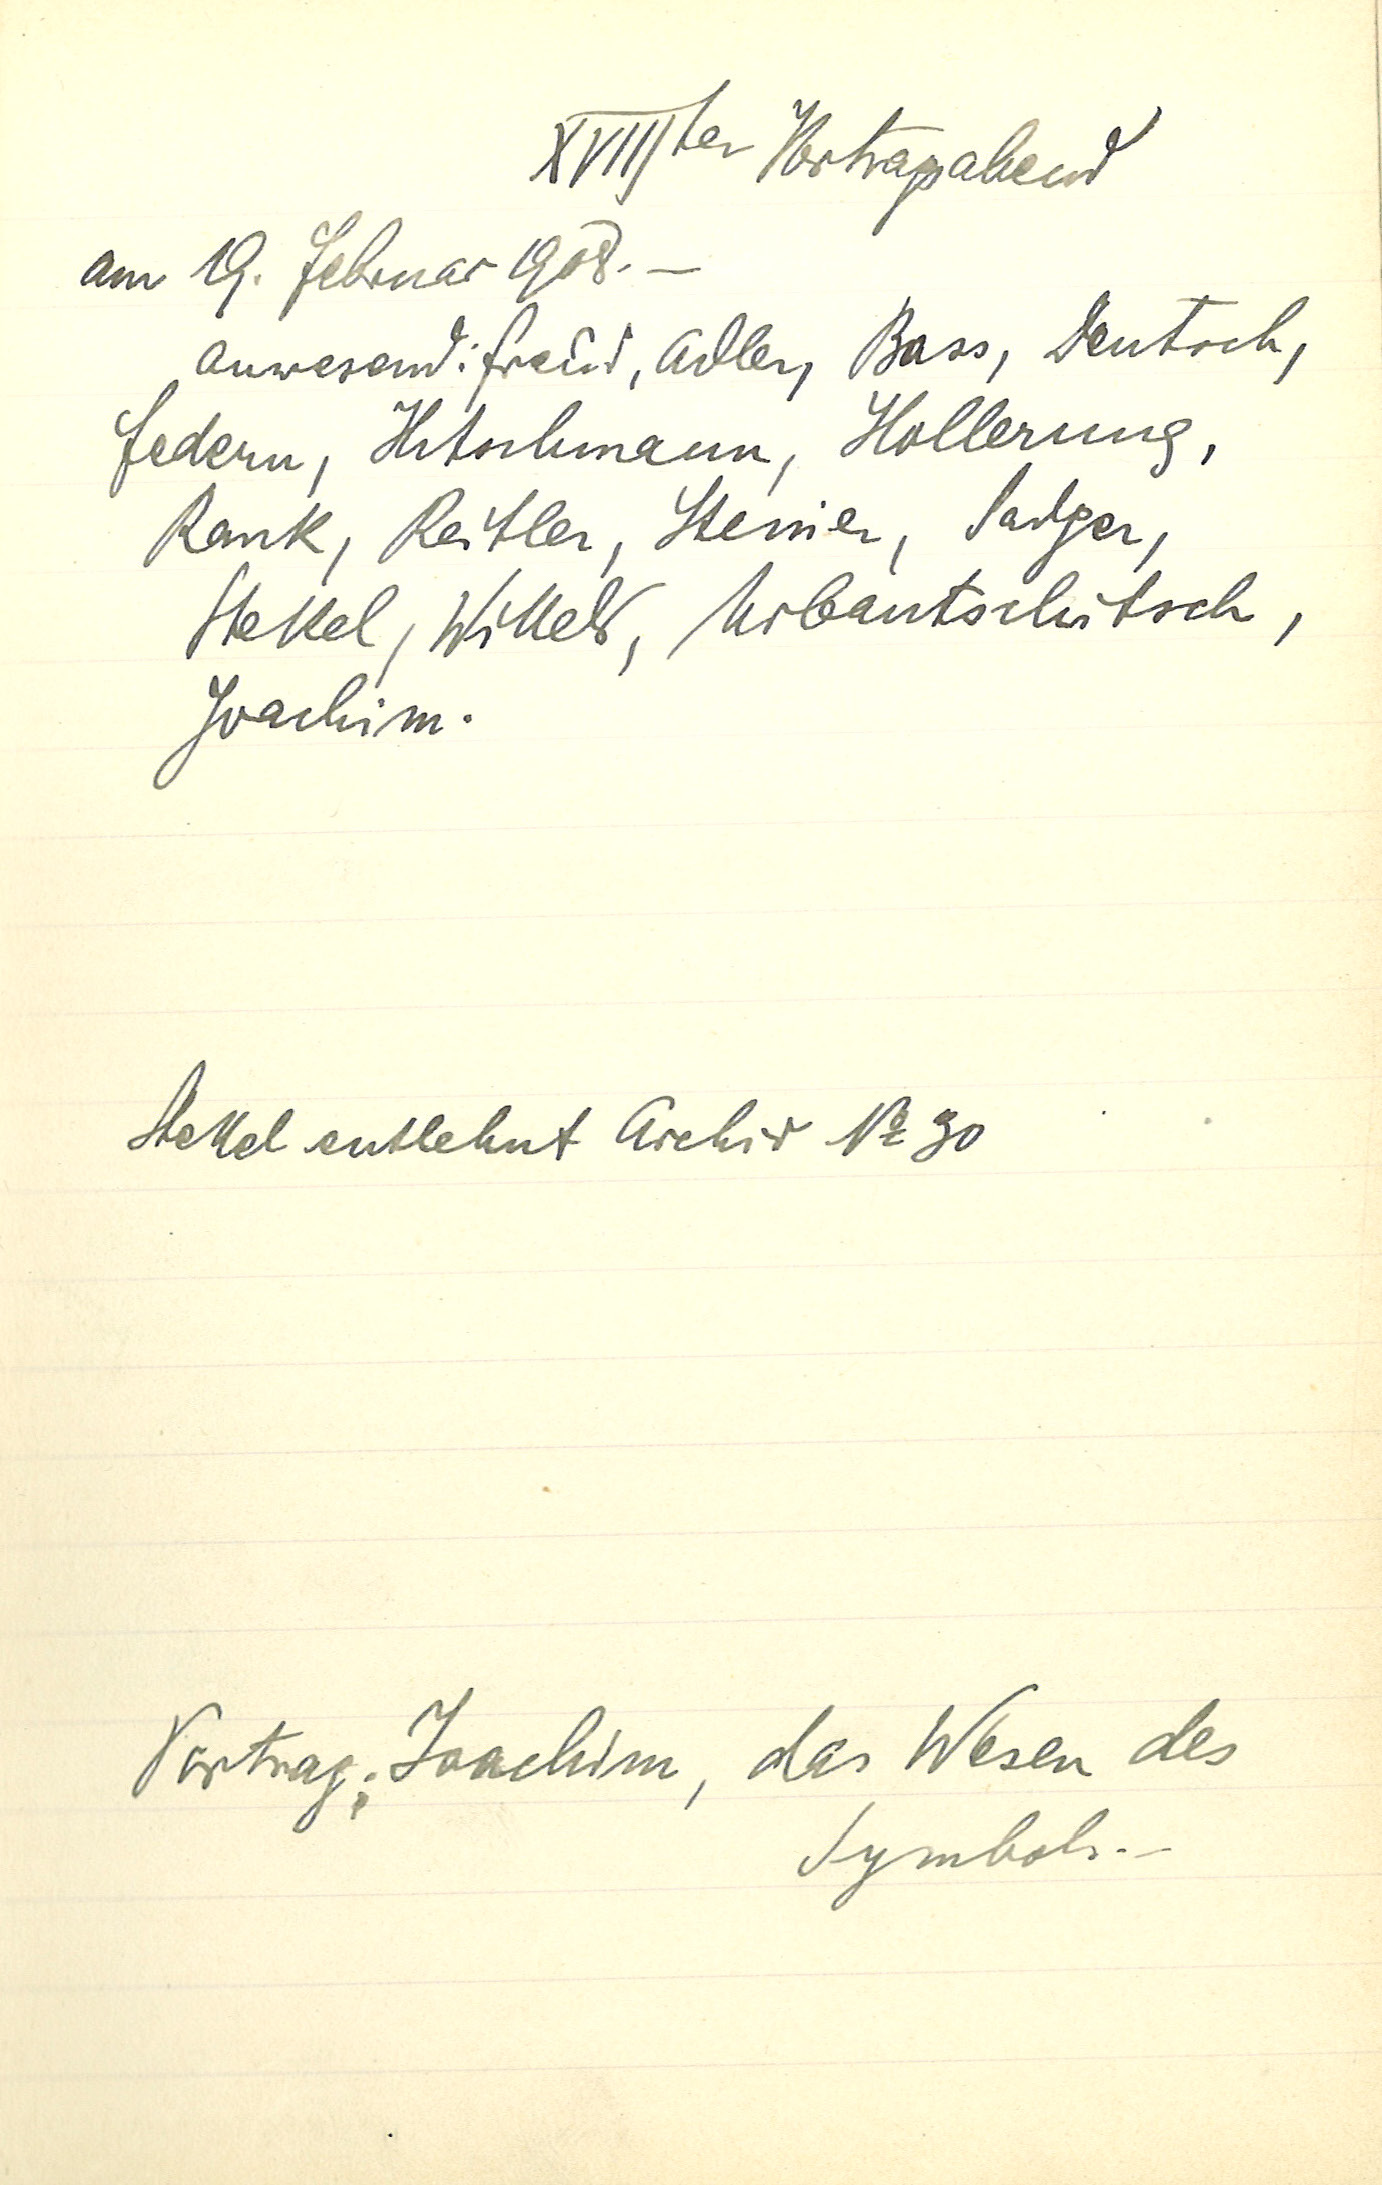 XVIIIter Vortragsabend
am 19. Februar 1908. —
anwesend: Freud, Adler, Bass, Deutsch,
Federn, Hitschmann, Hollerung,
Rank, Reitler, Steiner, Sadger,
Stekel, Wittels, Urbantschitsch,
Joachim.
Stekel entlehnt Archiv № 30
Vortrag: Joachim, das Wesen des
Symbols. —